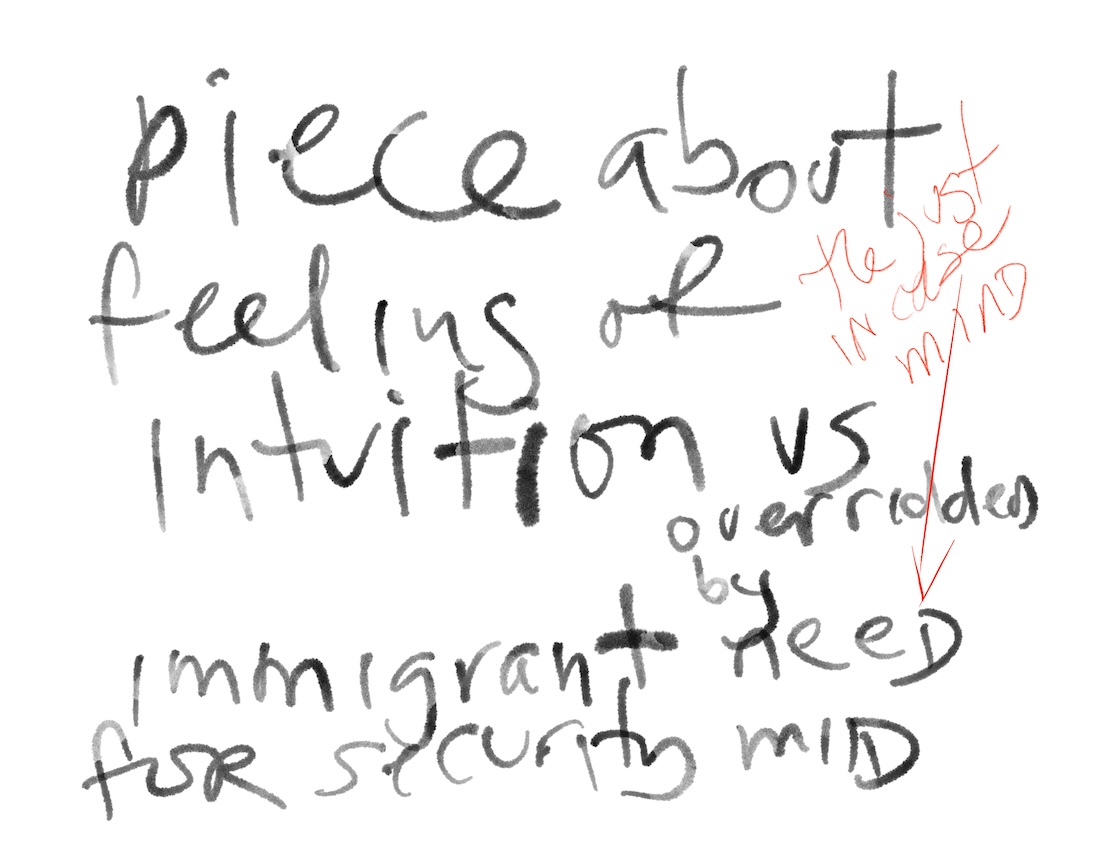 piece about
feeling of
intuition vs
overridden
by
immigrant need
for security MID
the just
in case
MIND